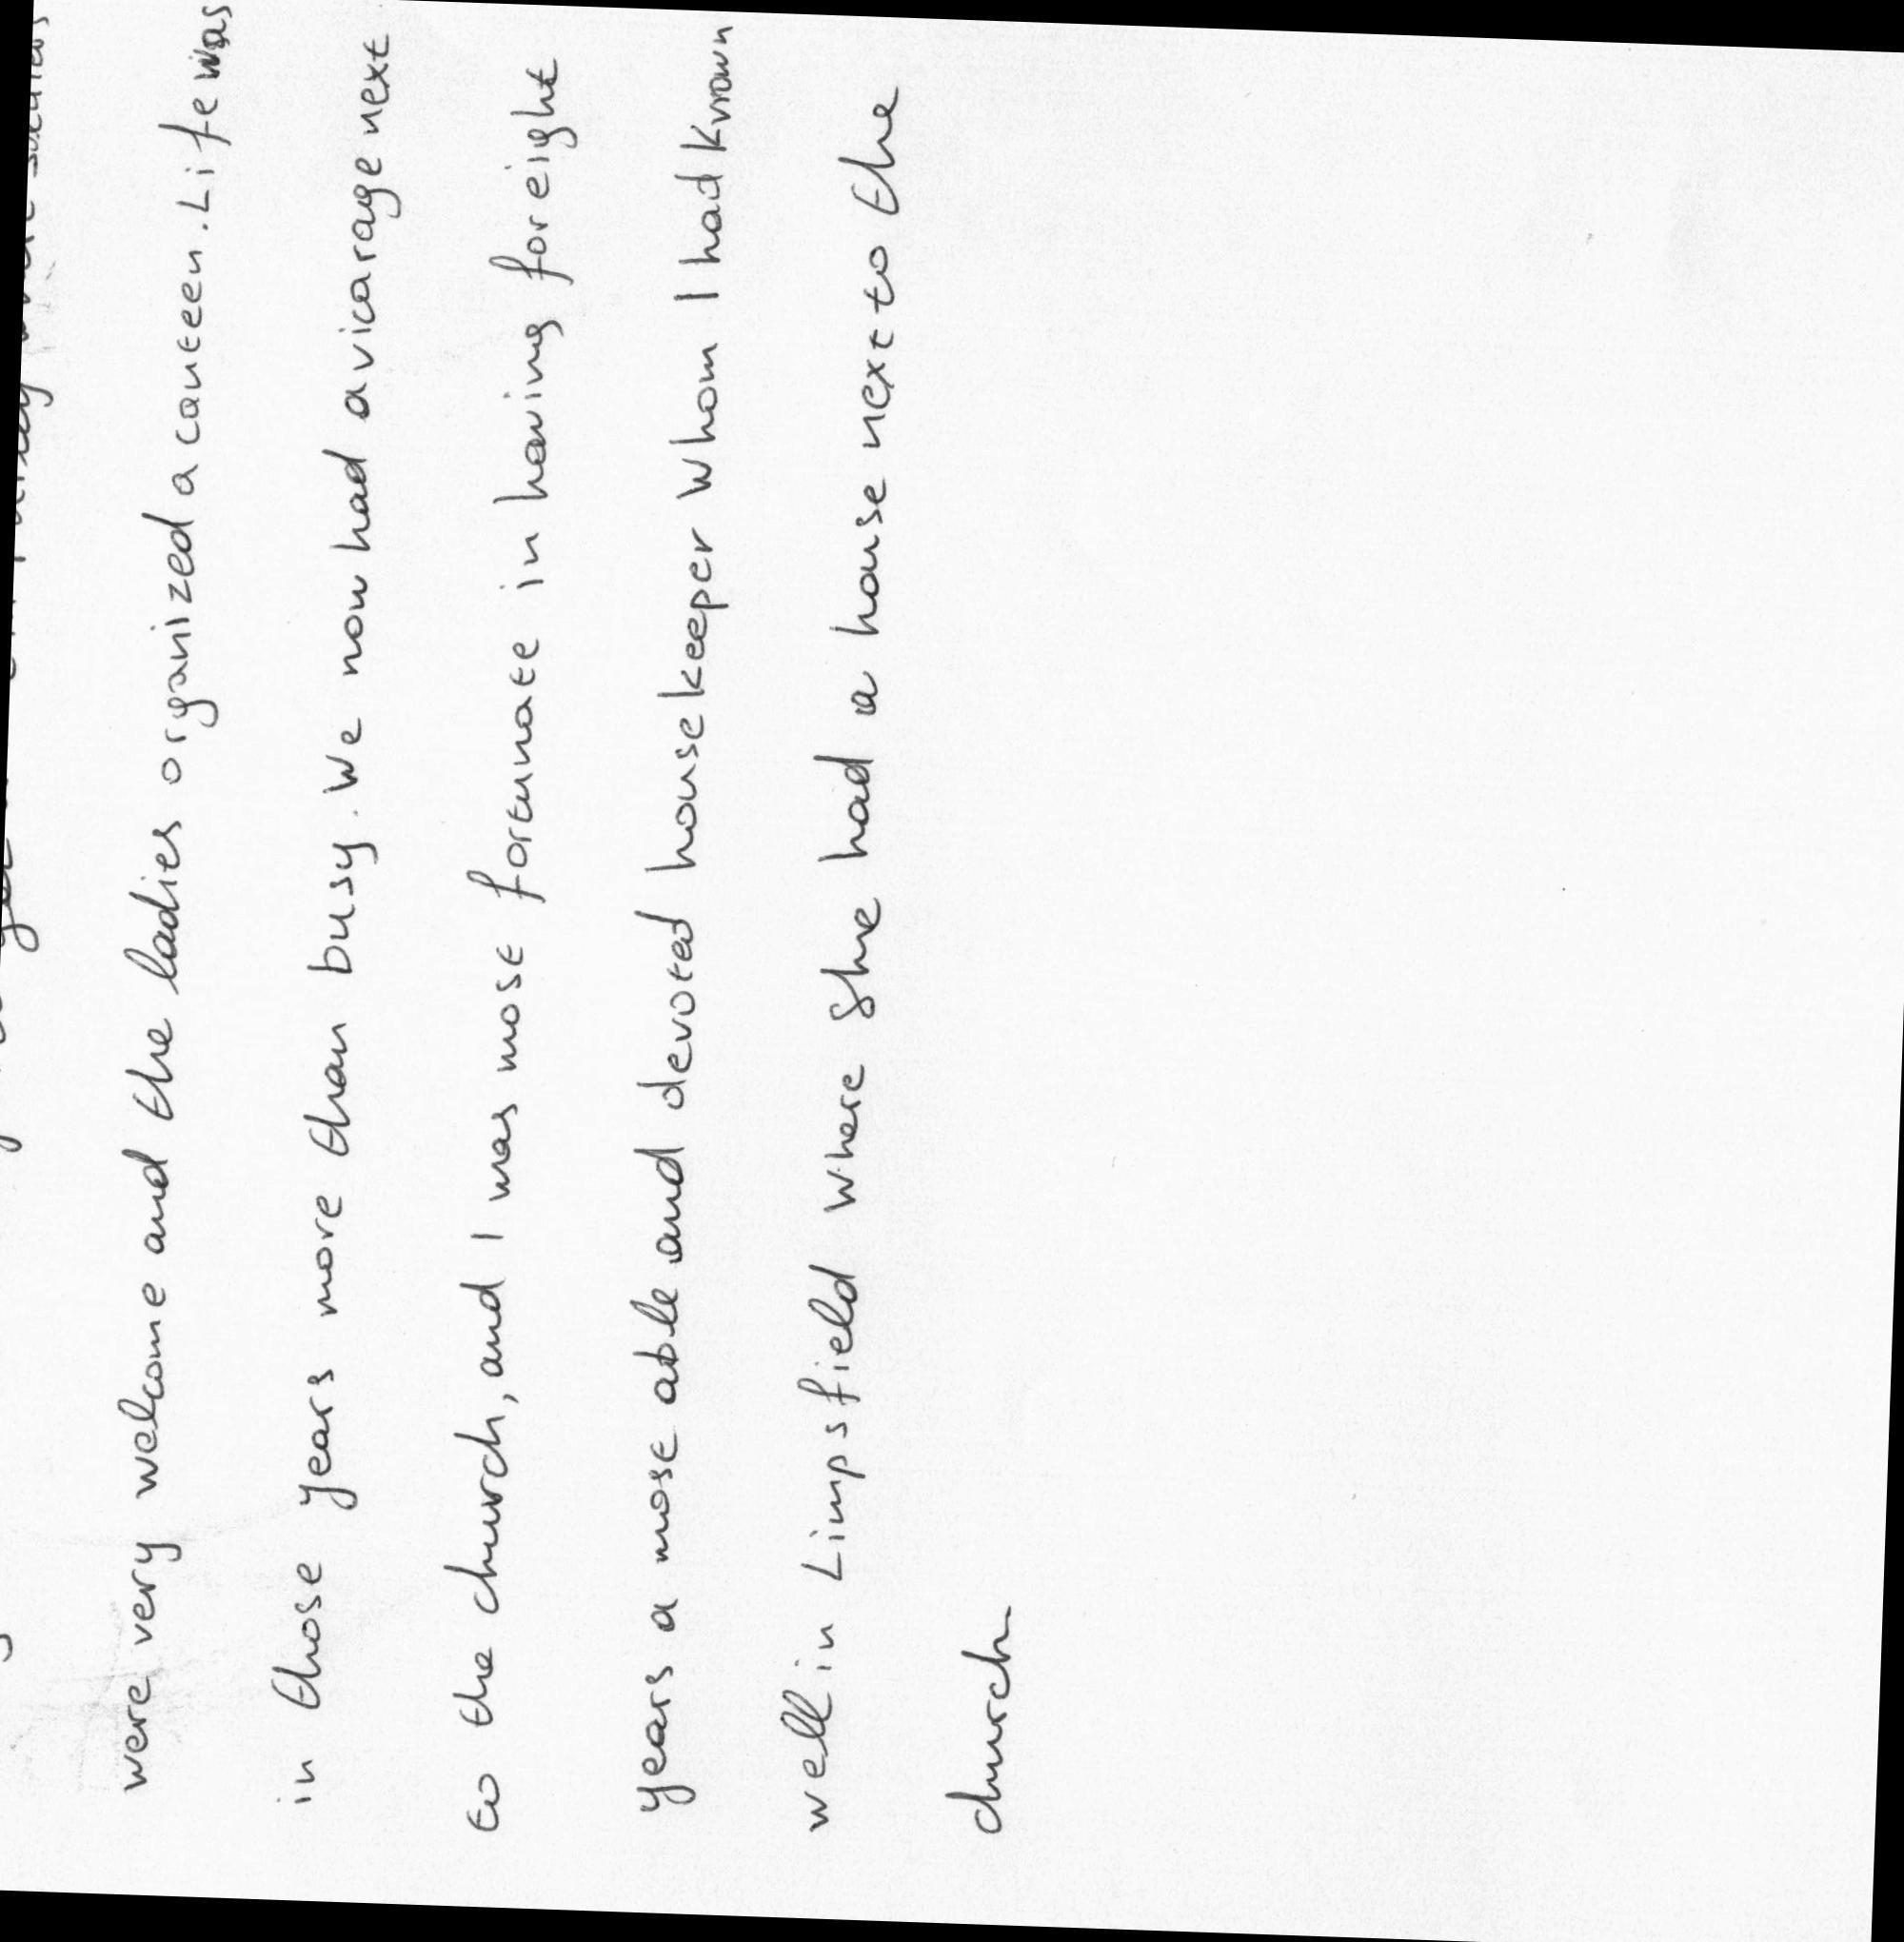 were very welcome and the ladies organized a canteen. Life was
in those years more than busy. We now had a vicarage next
to the church, and I was most fortunate in having for eight
years a most able and devoted housekeeper whom I had known
well in Limpsfield where she had a house next to the
church